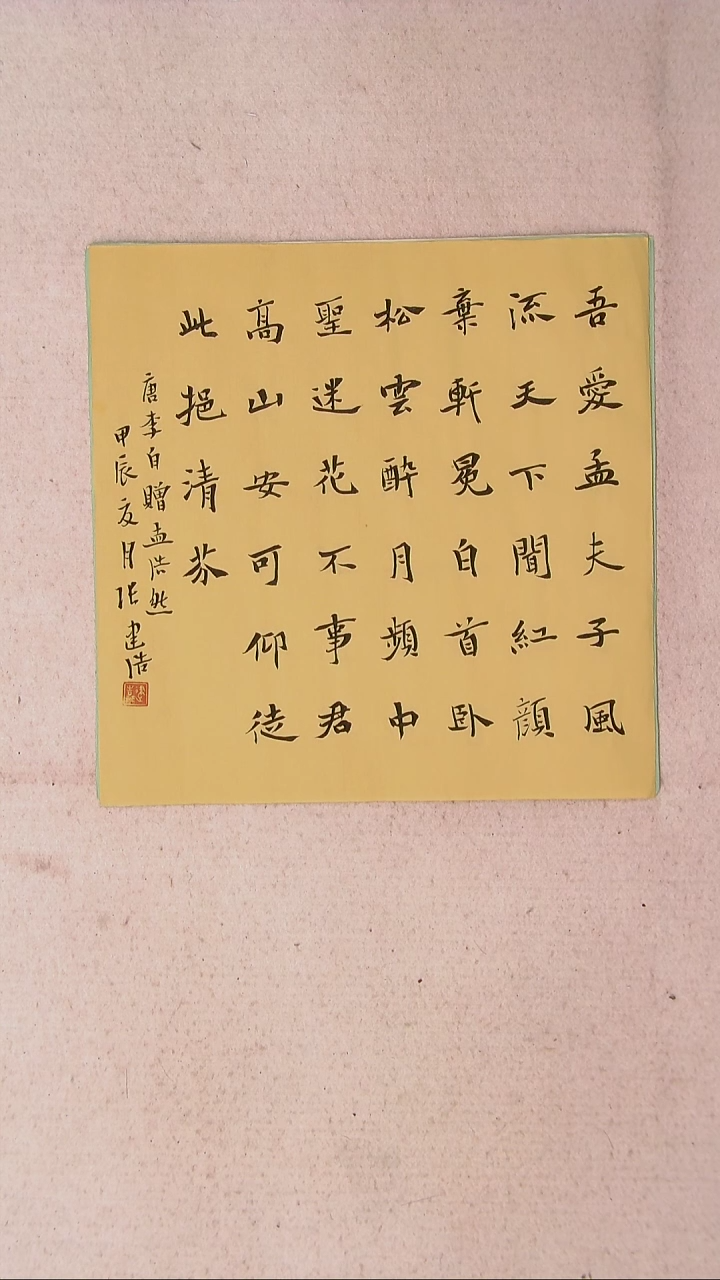 吾愛孟夫子風
流天下聞紅顔
棄軒冕白首臥
松雲醉月頻中
聖迷花不事君
高山安可仰徒
此挹清芬
唐李白贈孟浩然
甲辰夏月張建浩